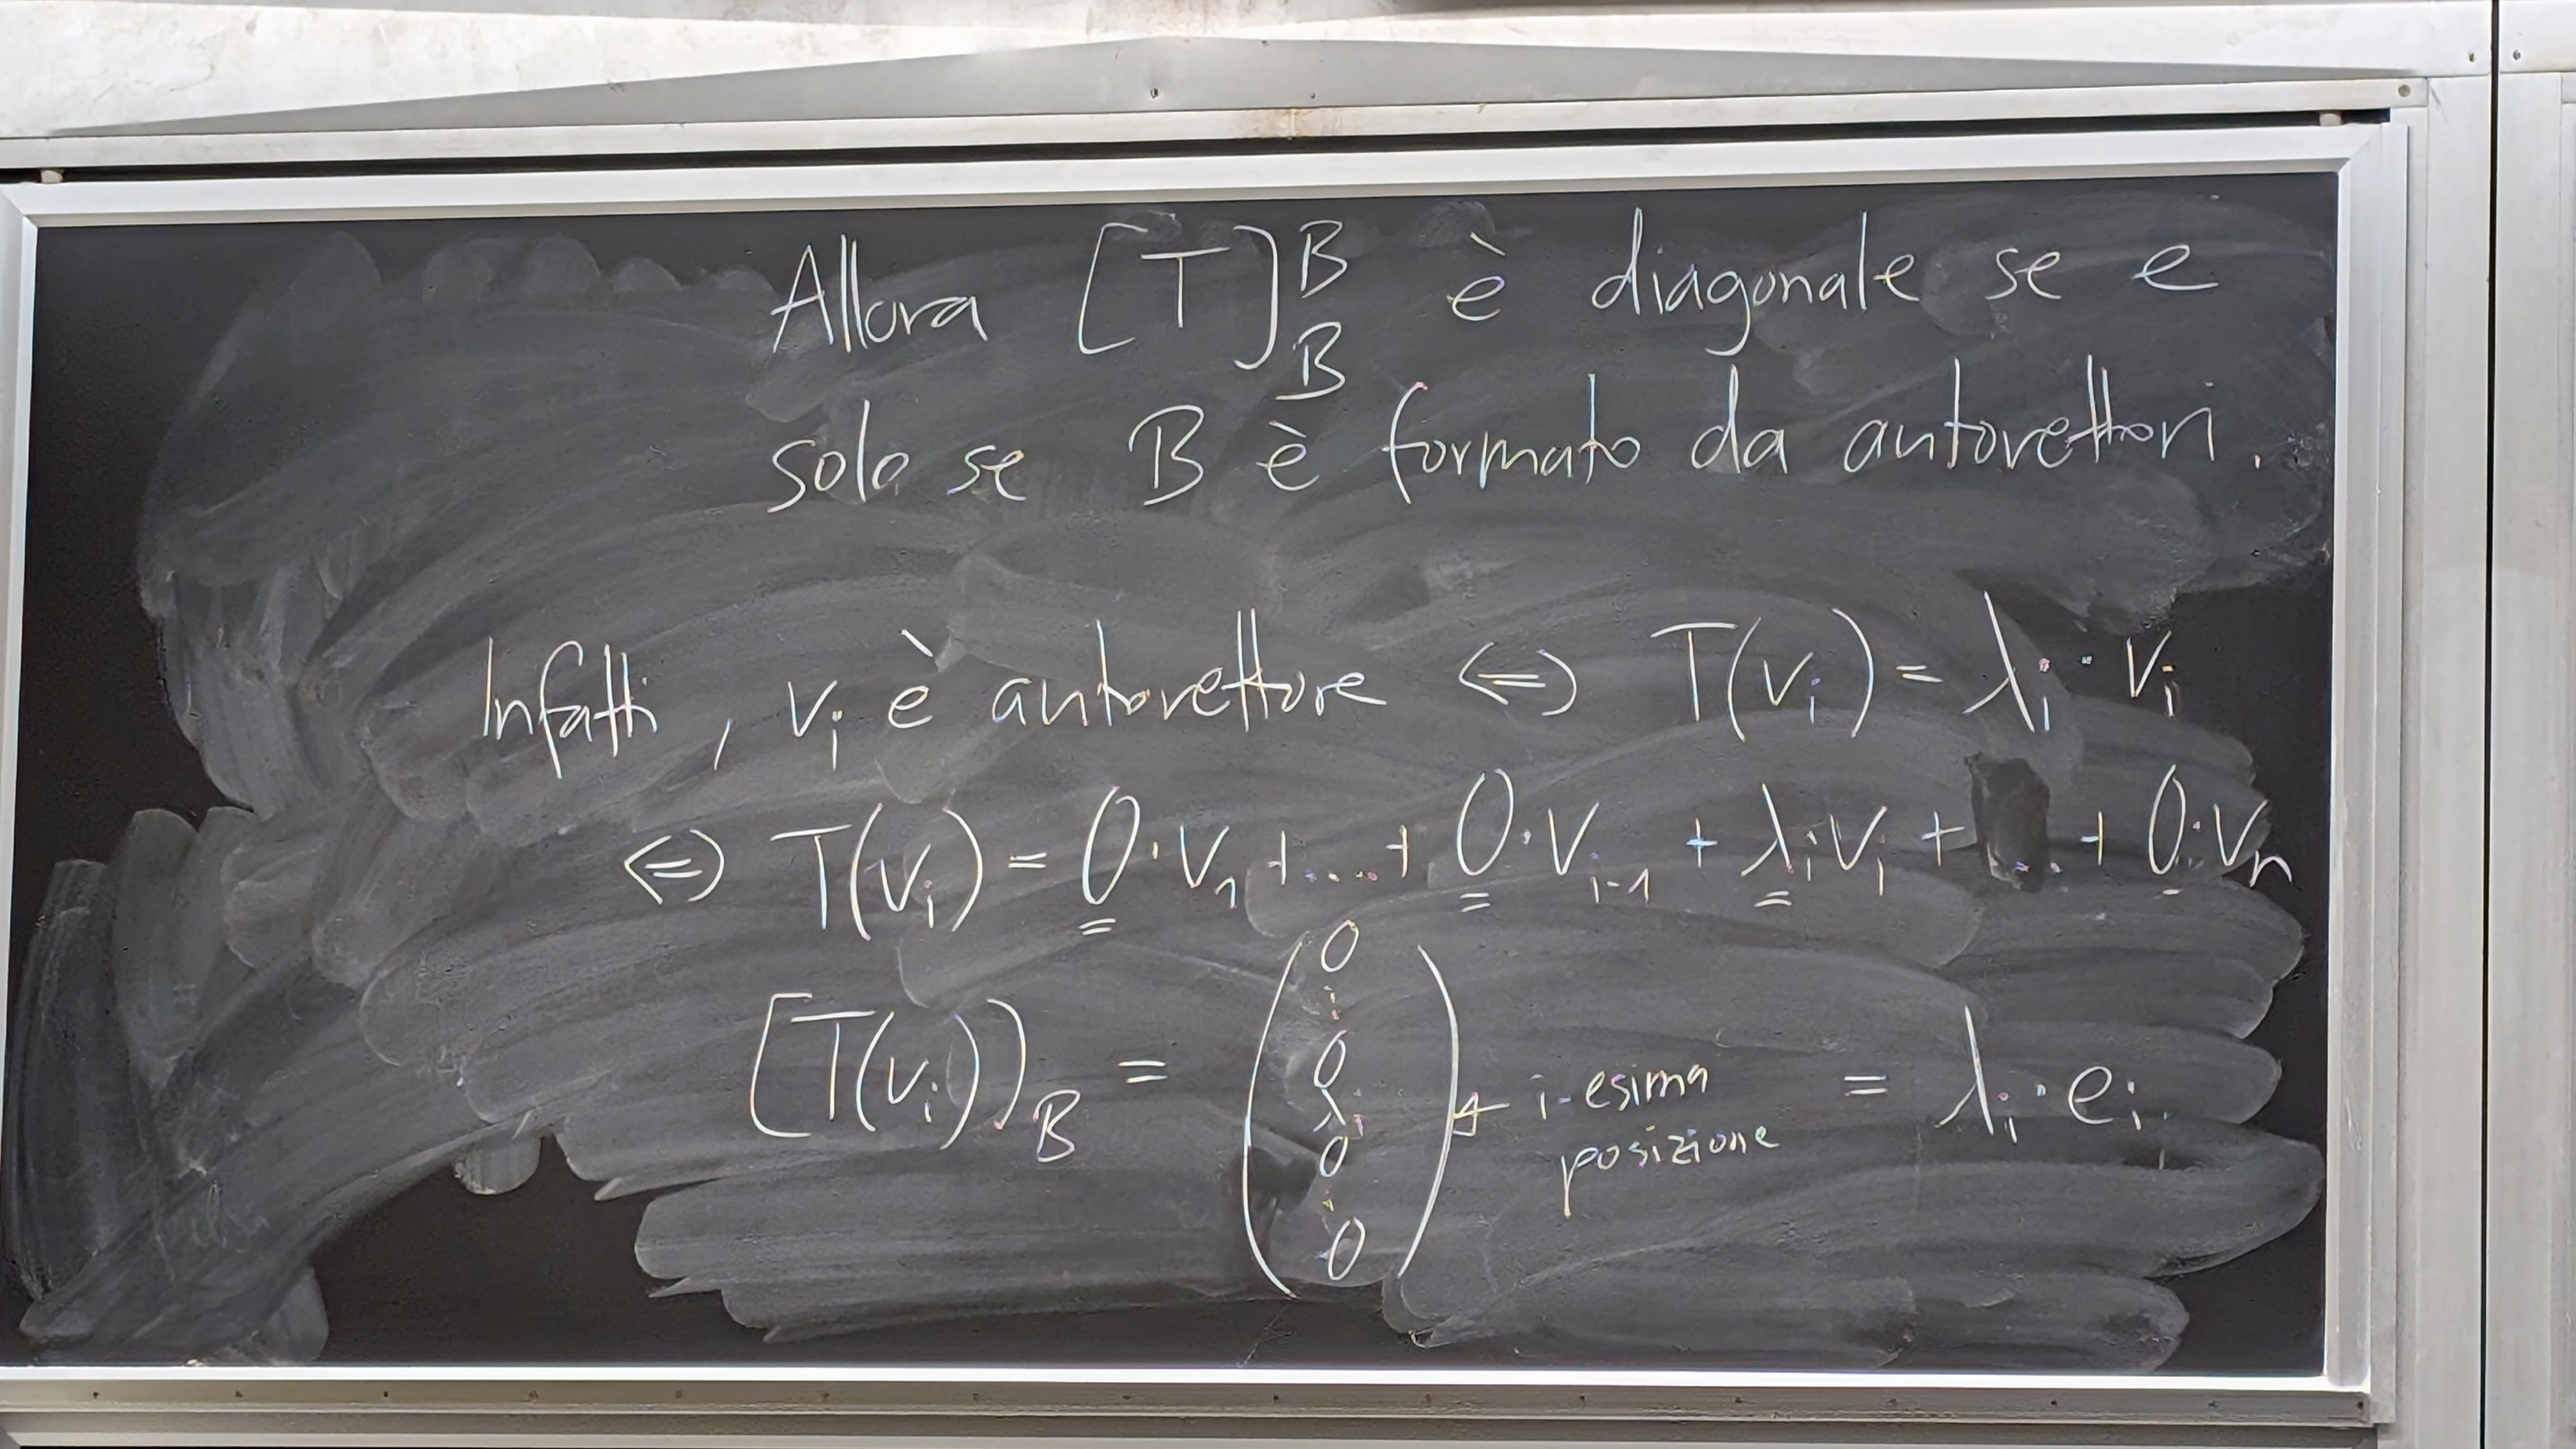 Allora [T]^B_B è diagonale se e
solo se B è formato da autovettori.
Infatti, v_i è autovettore ⇔ T(v_i) = λ_i · v_i
⇔ T(v_i) = 0·v_1 + ... + 0·v_{i-1} + λ_i v_i + ... + 0·v_n
[T(v_i)]_B = (0 ⋮ 0 λ_i 0 ⋮ 0) ← i-esima posizione = λ_i · e_i.